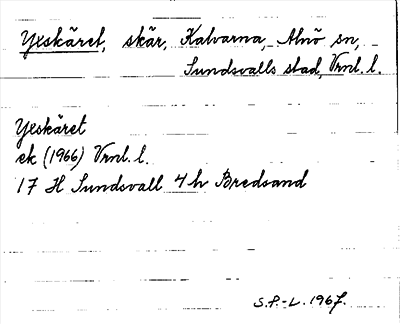 Yxskäret, skär, Kalvarna, Alnö sn,
Sundsvalls stad, Vrnl. l.
Yxskäret
ek (1966) Vrnl. l.
17 H Sundsvall 4 h Bredsand
S.P.-L. 1967.